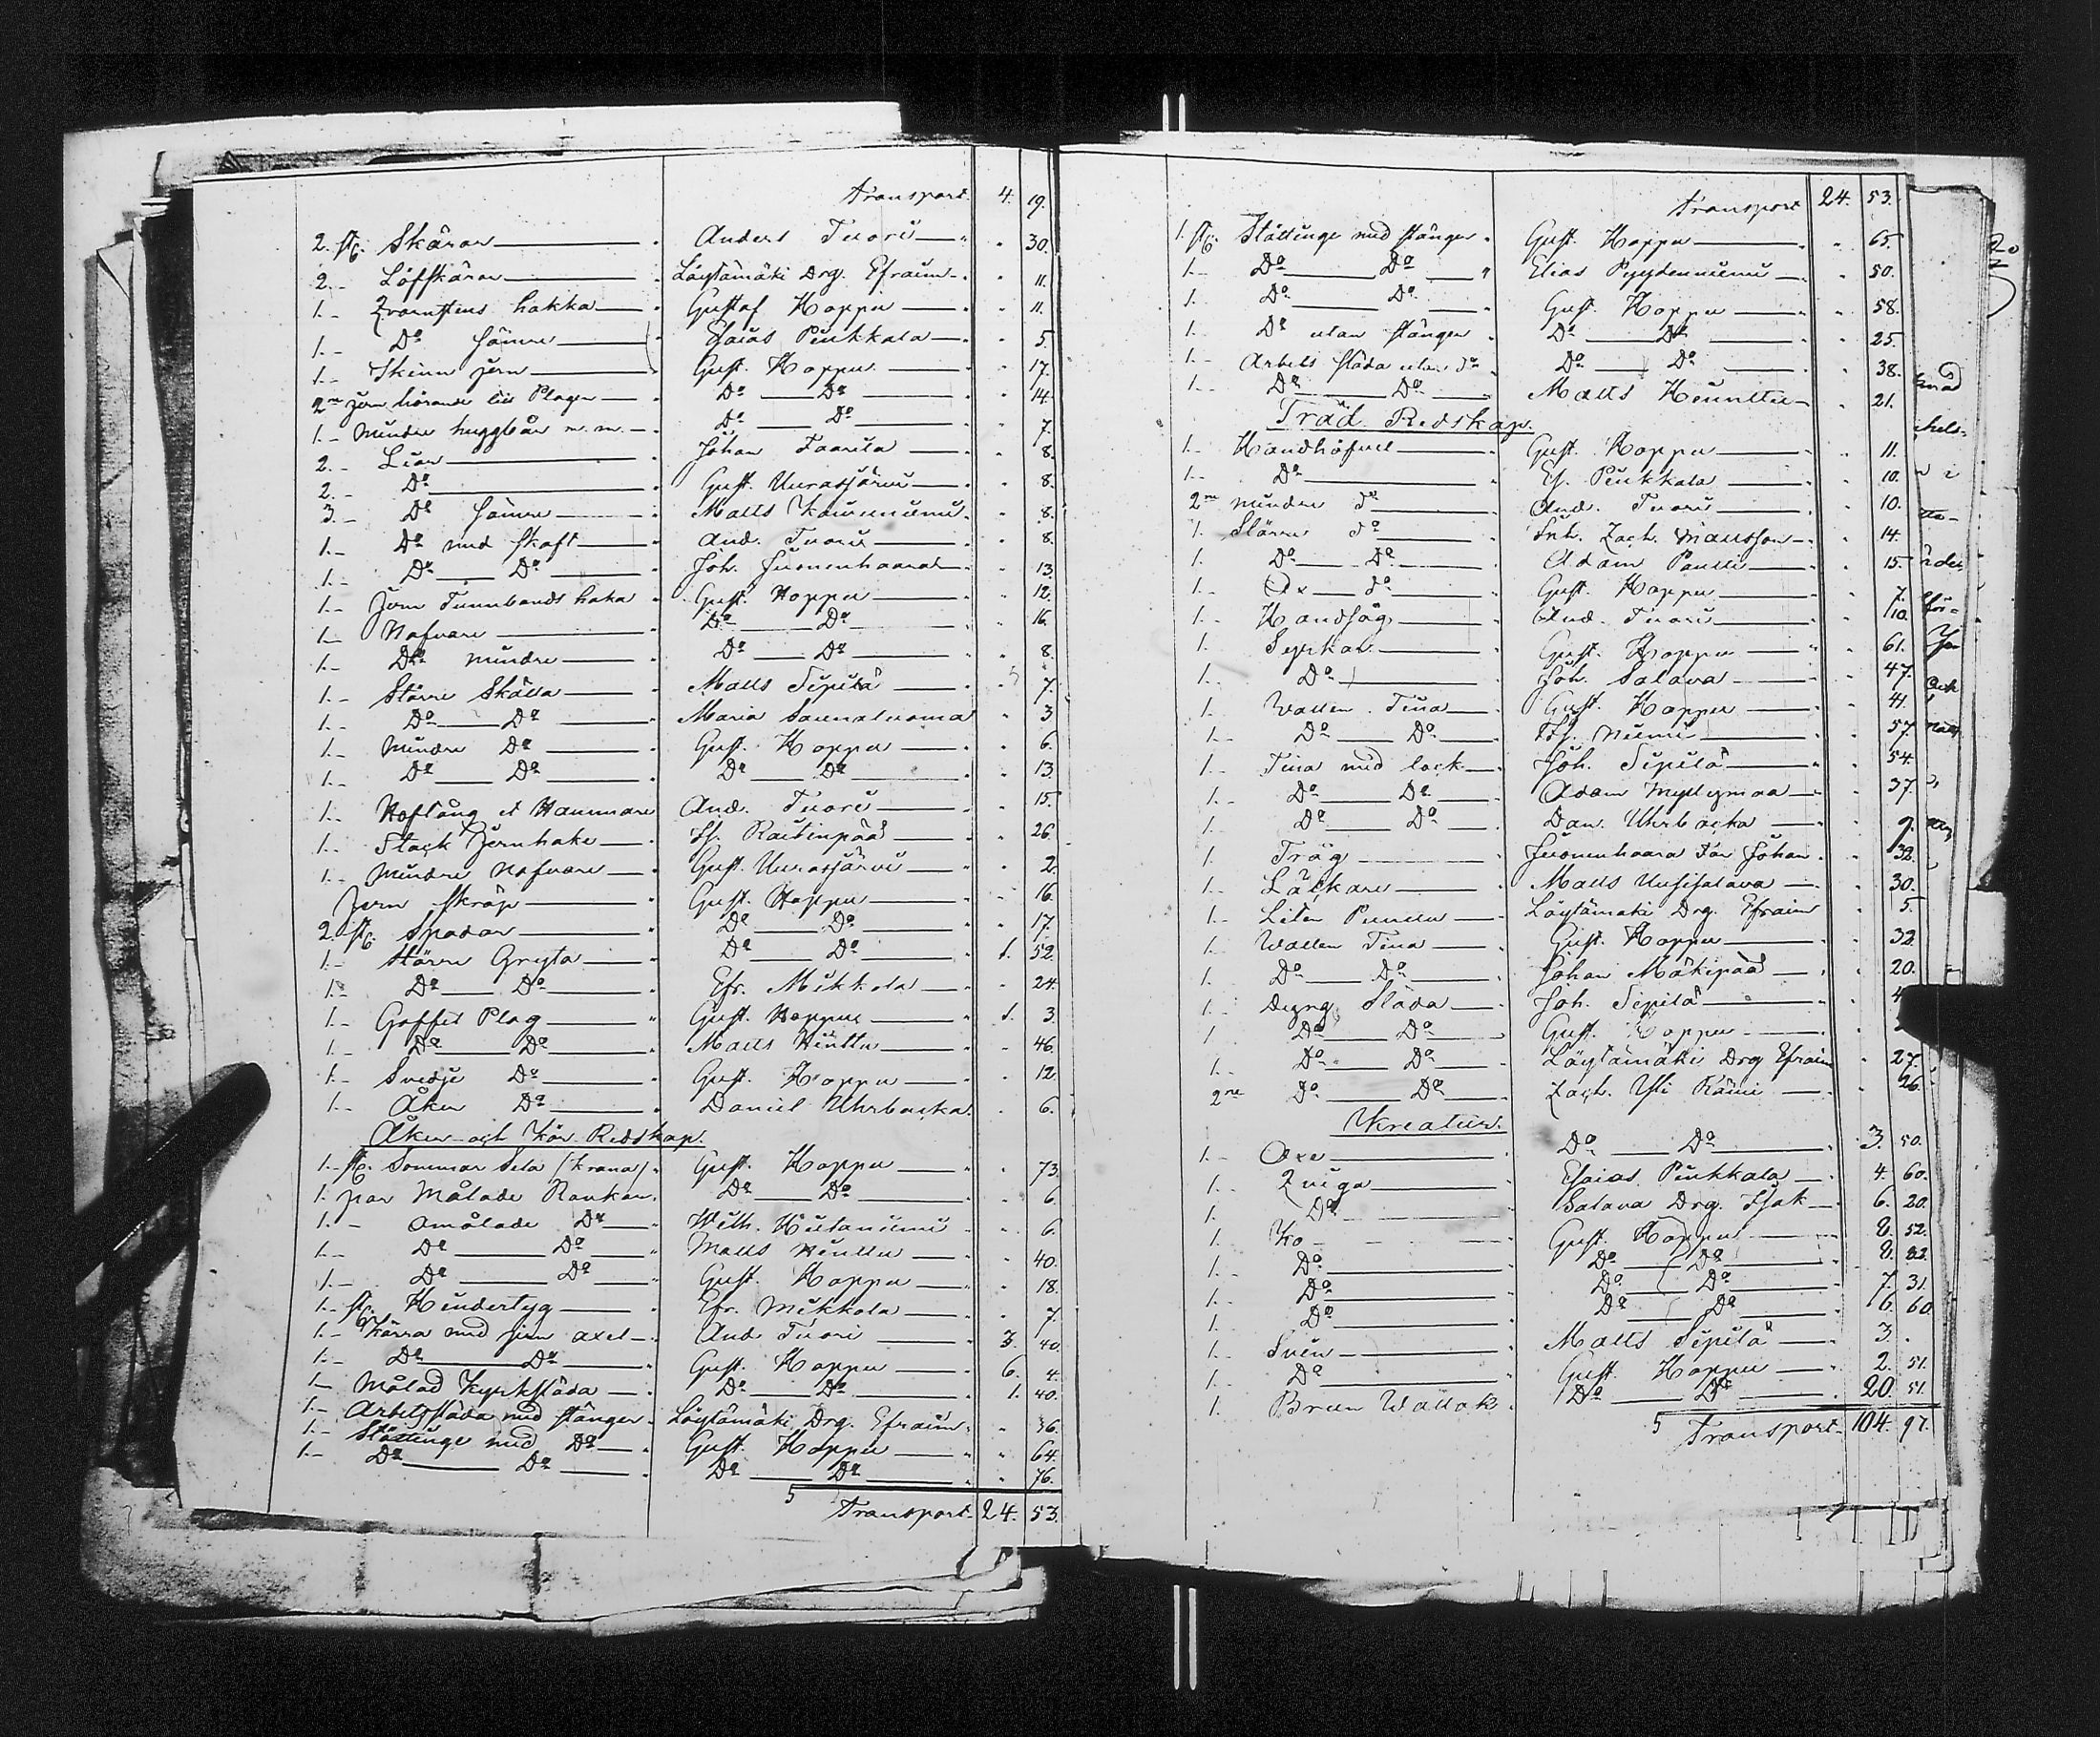 Transport. 4. 19.
2. st. Skäror Anders Tuori " 30.
2. Löfskäror Löytämäki Drg. Efraim " 11.
1. hakka Gustaf Hoppu " 11.
1. Do sämre Esaias Penkkala " 5.
1. Skinn jern Gust. Hoppu " 17.
2ne jern hörande till Plogen Do Do " 14.
1. Mindre huggtbår m.m. Do Do " 7.
2. Liar Johan Taarila " 8.
2. Do Gust. Uurasjärvi " 8.
3. Do sämre Matts " 8.
1. Do med skaft And. Tuori " 8.
1. Do Do Joh. Juonenhaara " 13.
1. Jern Tunnbands haka Gust. Hoppu " 12.
1. Nafvare Do Do " 16.
1. Do mindre Do Do " 8.
1. Större Skälla Matts Sipilä " 7.
1. Do Do Maria Saunaluoma " 3.
1. Mindre Do Gust. Hoppu " 6.
1. Do Do Do Do " 13.
1. Hoftång et Hammare And. Tuori " 15.
1. Stack Jernhake Is. Rautinpää " 26.
1. Mindre Nafvare Gust. Uurasjärvi " 2.
Jern skråp Gust. Hoppu " 16.
2. st. Spadar Do Do " 17.
1. Större Gryta Do Do 1. 52.
1. Do Do Efr. Mikkola " 24.
1. Gaffel Plog Gust. Hoppu 1. 3.
1. Do Do Matts Hinttu " 46.
1. Svedje Do Gust. Hoppu " 12.
1. Åker Do Daniel Uhrbacka " 6.
Åker och Kör Redskap.
1. st. Sommar Sela (krana) Gust. Hoppu " 73.
1. par Målade Rankor Do Do " 6.
1. Omålade Do Wilh. Hietaniemi " 6.
1. Do Do Matts Hinttu " 40.
1. Do Do Gust. Hoppu " 18.
1. st. Hindertyg Efr. Mikkola " 7.
1. Kärra med jern axel And. Tuori 3. 40.
1. Do Do Gust. Hoppu 6. 4.
1. Målad Kyrksläda Do Do 1. 40.
1. Arbetssläda med stänger Löytämäki Drg. Efraim " 36.
1. Stöttinge med Do Gust. Hoppu " 64.
1. Do Do Do Do " 76.
Transport. 24. 53.
Transport 24. 53.
1. st. Stöttinge med stänger Gust. Hoppu " 65.
1. Do Do Elias Pyydenniemi " 50.
1. Do Do Gust. Hoppu " 58.
1. Do utan stänger Do Do " 25.
1. Arbets släda utan do Do Do " 38.
1. Do Do Matts Hinnttu " 21.
Träd Redskap.
1. Handhöfvel Gust. Hoppu " 11.
1. Do Es. Penkkala " 10.
2ne mindre do And. Tuori " 10.
1. Större do Inh. Zach. Mansson " 14.
1. Do Do Adam " 15.
1. Ox do Gust. Hoppu " 7.
1. Handsåg And. Tuori " 10.
1. Syrkar Gust. Hoppu " 61.
1. Do Joh. Salava " 47.
1. Watten Tina Gust. Hoppu " 41.
1. Do Do Niemi " 57.
1. Tina med lock Joh. Sipilä " 54.
1. Do Do Adam Myllymaa " 37.
1. Do Do Dan. Uhrbacka " 9.
1. Tråg Juonenhaara Far Johan " 32.
1. Läckare Matts Uusisalava " 30.
1. Liten Punttu Löytämäki Drg. Efraim " 5.
1. Watten Tina Gust. Hoppu " 32.
1. Do Do Johan Mäkipää " 20.
1. Dyng Släda Joh. Sipilä " 4
1 Do Do Gust. Hoppu "
1. Do Do Löytämäki Drg Efraim " 27.
2ne Do Do Zach. Yli Rämi " 26.
Kreatur.
1. Oxe Do Do 3. 50.
1. Quiga Esaias Penkkala 4. 60.
1. Do Salava Drg. Isak 6. 20.
1. Ko Gust. Hoppu 8. 52.
1. Do Do Do 8. 22.
1. Do Do Do 7. 31.
1. Do Do Do 6. 60.
1. Svin Matts Sipilä 3. "
1. Do Gust. Hoppu 2. 51.
1. Brun Wallak Do Do 20. 51.
Transport. 104. 97.